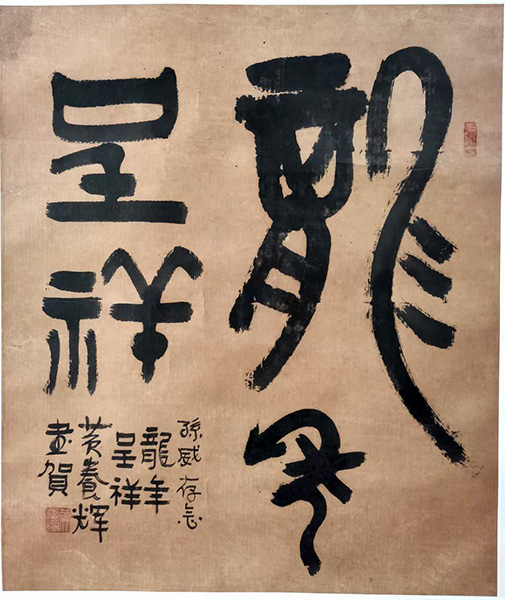 龍年
呈祥
孫威存念
龍年
呈祥
黄養辉
書賀